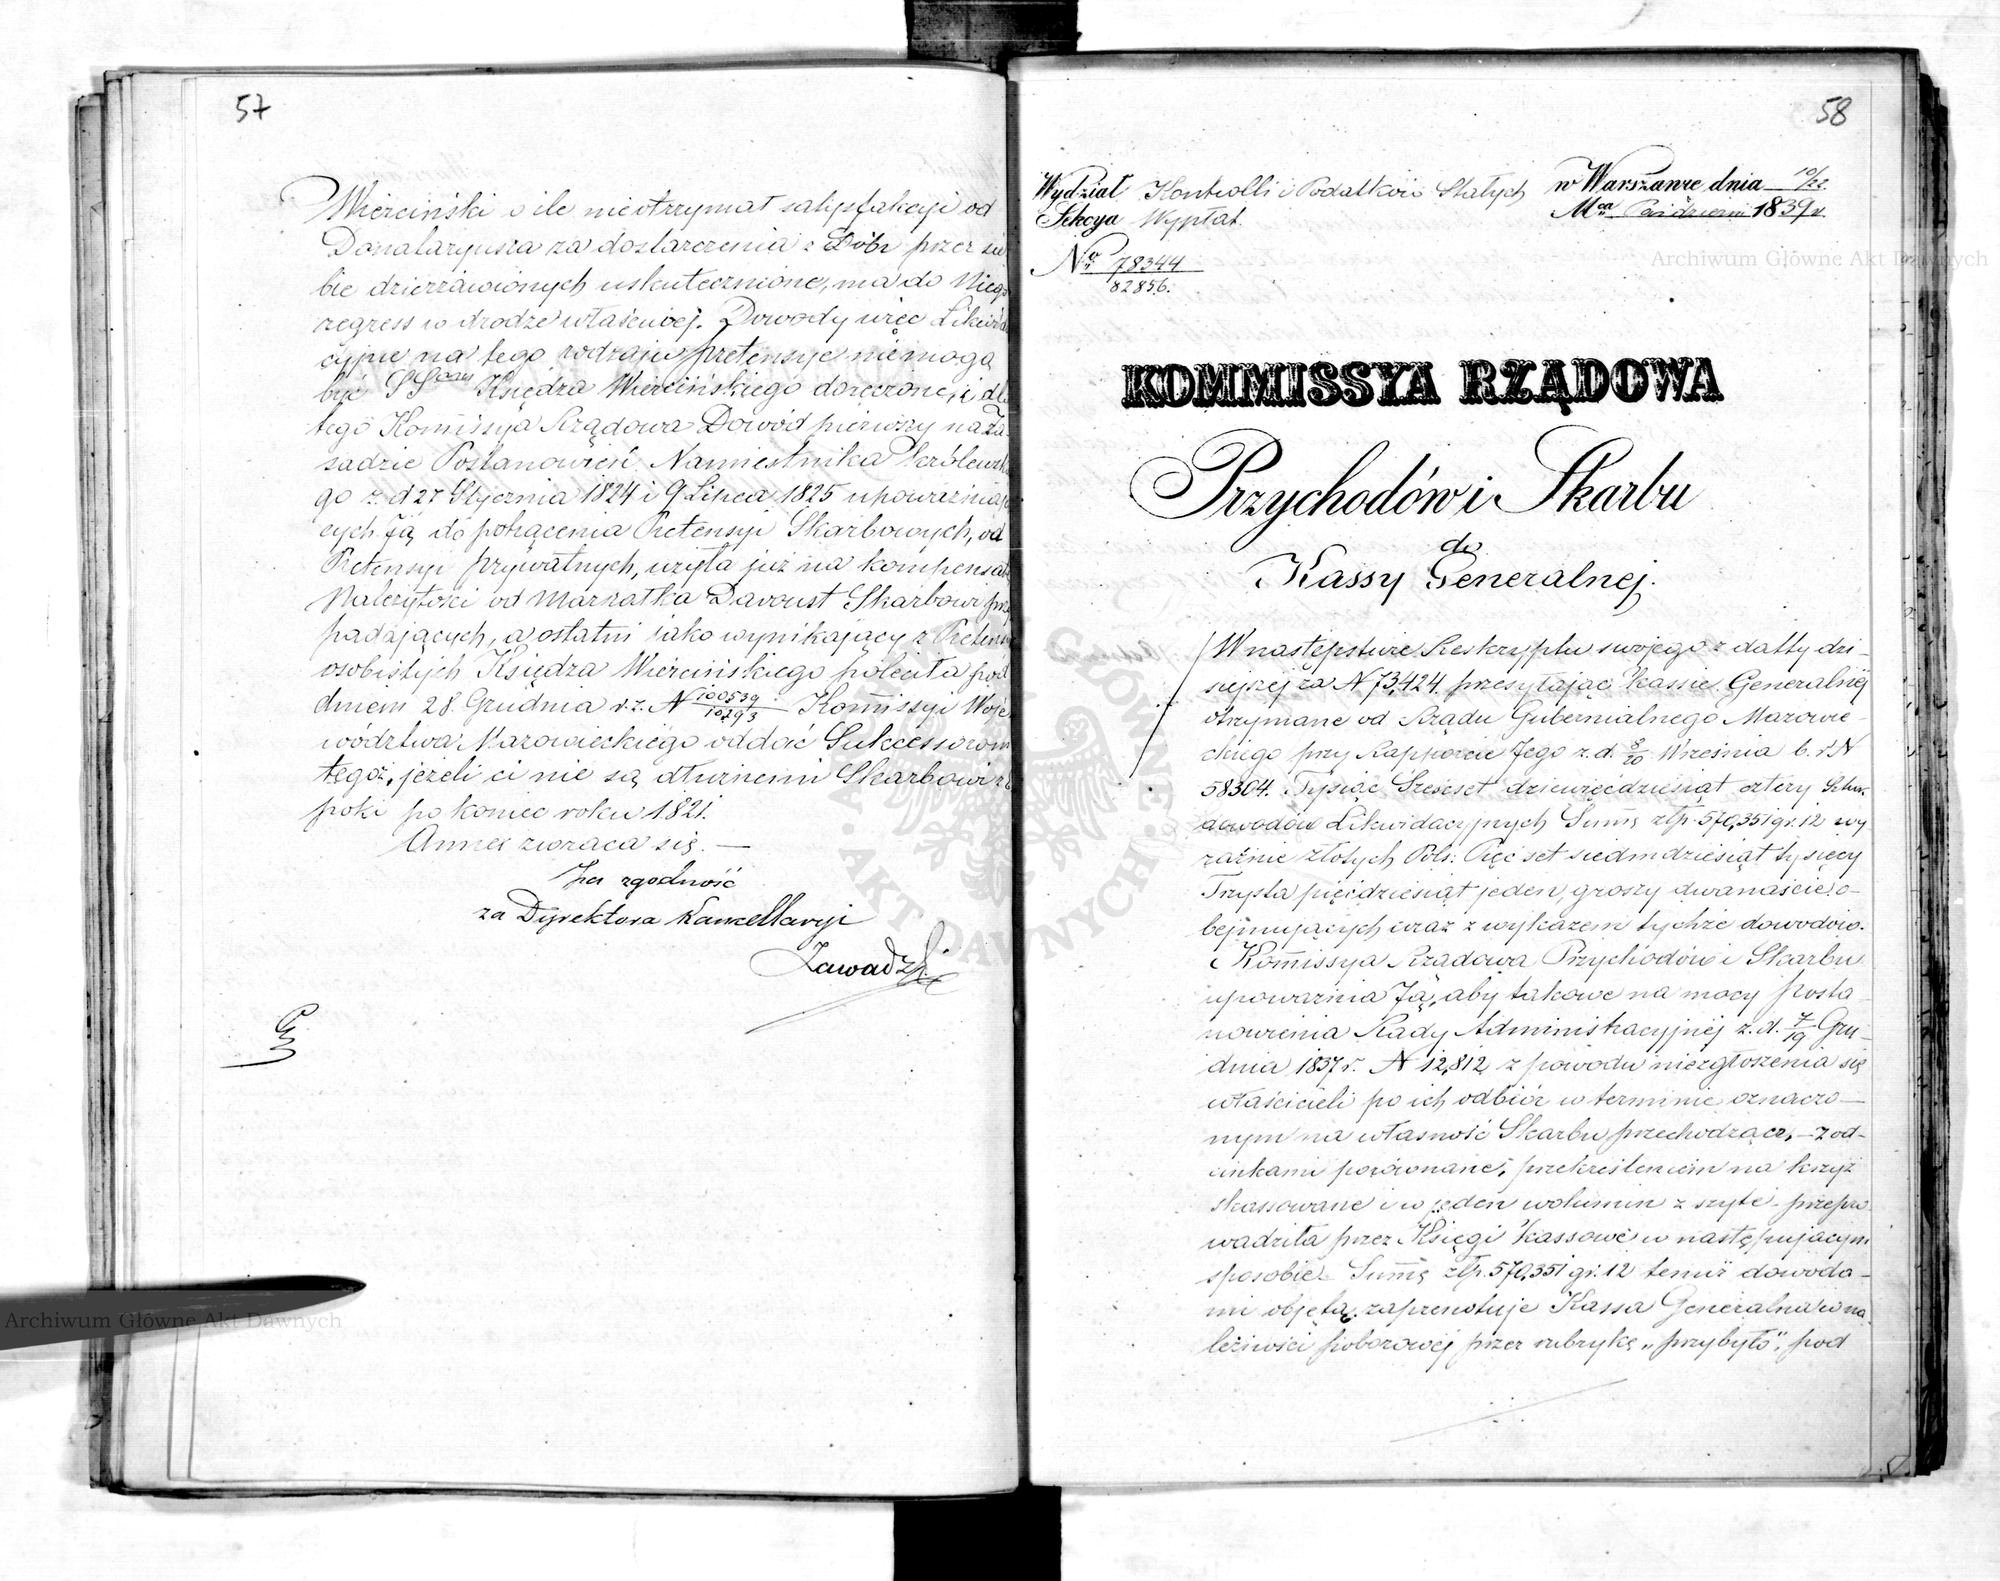 57
Wierciński o ile nieotrzymał satysfakcyi od
Donataryusza za dostarczenia z Dóbr przez sie
bie dzierżawionych uskutecznione, ma do Niego
regress w drodze właściwej. Dowody więc Likwida
cyjne na tego rodzaju pretensye niemogą
być SSom Księdza Wiercińskiego doręczone, i dla
tego Kommissya Rządowa Dowód pierwszy na Za-
sadzie Postanowień Namiestnika Królewskie
go z d 27 Stycznia 1824 i 9 Lipca 1825 upoważniają
cych Ją do potrącenia Pretensyi Skarbowych, od
Pretensyi prywatnych, użyła już na kompensatę
Należytości od Marszałka Davoust Skarbowi przy
padających, a ostatni iako wynikający z Pretensyi
osobistych Księdza Wiercińskiego poleciła pod
dniem 28 Grudnia r. z. N 100539/10293 Kommissyi Woje
wództwa Mazowieckiego oddać Sukcessorom
tegoż, jeżeli ci nie są dłużnemi Skarbowi z E
poki po koniec roku 1821.
Annex zwraca się. —
Za zgodność
za Dyrektora Kancellaryi
Zawadzki
58
Wydział Kontrolli i Podatków Stałych
w Warszawie dnia 10/22
Sekcya Wypłat.
Mca Październ 1839 r.
No 78344/82856.
KOMMISSYA RZĄDOWA
Przychodów i Skarbu
do
Kassy Generalnej.
W następstwie Reskryptu swojego z datty dzi-
siejszej za N 73,424 przesyłając Kassie Generalnej
otrzymane od Rządu Gubernialnego Mazowie-
ckiego przy Rapporcie Jego z. d. 8/20 Września b. r. N
58304. Tysiąc Sześćset dziewięćdziesiąt cztery Sztuk
dowodów Likwidacyjnych Summę złp. 570,351 gr. 12 wy
raźnie złotych Pols: Pięć set siedmdziesiąt tysięcy
Trzysta pięćdziesiąt jeden, groszy dwanaście o-
bejmujących wraz z wykazem tychże dowodów.
Kommissya Rządowa Przychodów i Skarbu
upoważnia Ją, aby takowe na mocy posta-
nowienia Rady Administracyjnej z. d. 7/19 Gru-
dnia 1837 r. N 12,812 z powodu niezgłoszenia się
właścicieli po ich odbiór w terminie oznaczo—
nym na własność Skarbu przechodzące, — z od-
cinkami porównane, przekreśleniem na krzyż
skassowane i w jeden wolumin z szyte przepro
wadziła przez Księgi Kassowe w następującym
sposobie. Summę złp. 570,351 gr. 12 temiż dowoda-
mi objętą zaprenotuje Kassa Generalna w na
leżności poborowej przez rubrykę „przybyło", pod
Archiwum Główne Akt Dawnych
Archiwum Główne Akt Dawnych